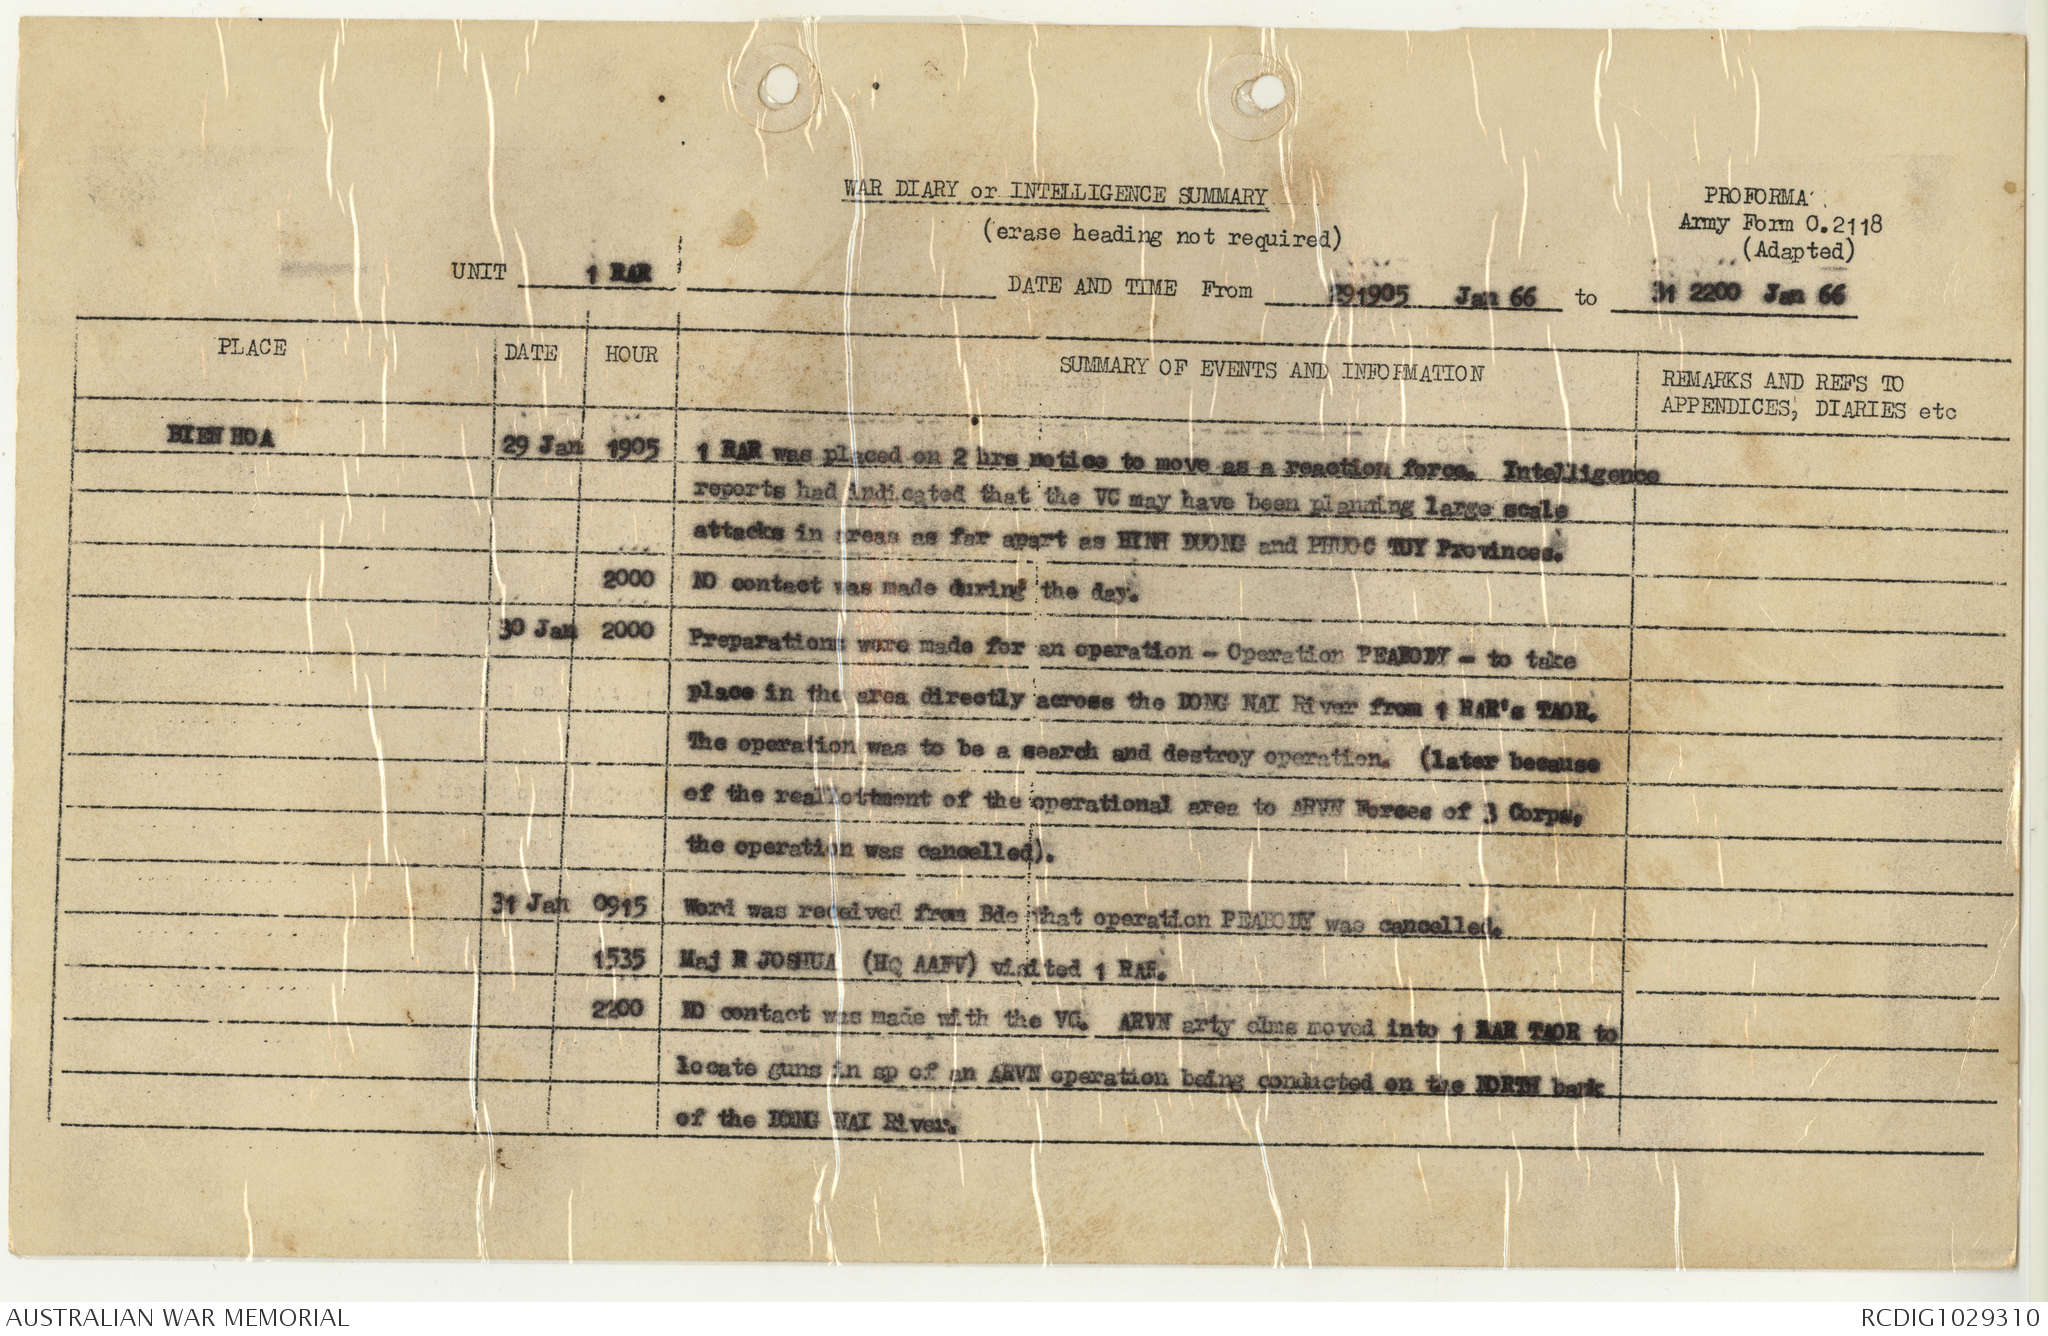 WAR DIARY or INTELLIGENCE SUMMARY
(erase heading not required)
PROFORMA
Army Form O.2118
(Adapted)
UNIT 1 RAR
DATE AND TIME From 291905 Jan 66 to 31 2200 Jan 66
PLACE DATE HOUR SUMMARY OF EVENTS AND INFORMATION REMARKS AND REFS TO
APPENDICES, DIARIES etc
BIEN HOA 29 Jan 1905 1 RAR was placed on 2 hrs notice to move as a reaction force. Intelligence
reports had indicated that the VC may have been planning large scale
attacks in areas as far apart as DUONG and PHUOC TUY Provinces.
2000 NO contact was made during the day.
30 Jan 2000 Preparations were made for an operation - Operation PEABODY - to take
place in the area directly across the DONG NAI River from 1 RAR's TAOR.
The operation was to be a search and destroy operation. (later because
of the reallottment of the operational area to ARVN Forces of 3 Corps,
the operation was cancelled).
31 Jan 0915 Word was received from Bde that operation PEABODY was cancelled.
1535 Maj R JOSHUA (HQ AAFV) visited 1 RAR.
2200 NO contact was made with the VC. ARVN arty elms moved into 1 RAR TAOR to
locate guns in sp of an ARVN operation being conducted on the NORTH bank
of the DONG NAI River.
AUSTRALIAN WAR MEMORIAL
RCDIG1029310